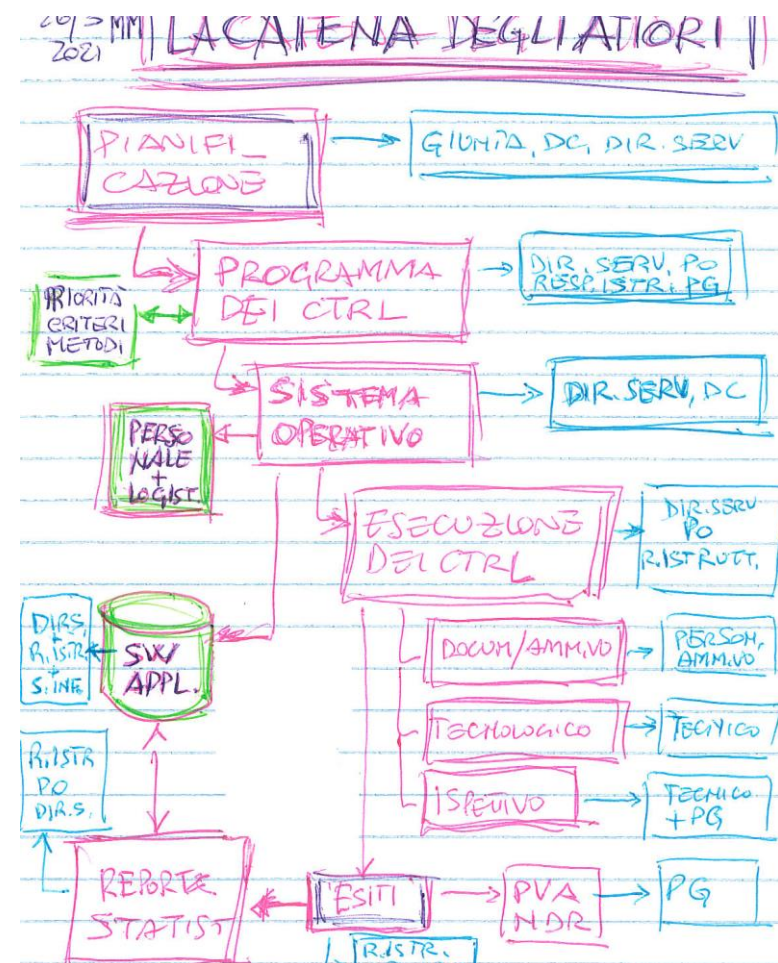 26/3 MM
2021
LA CATENA DEGLI ATTORI
PIANIFI_
CAZIONE
GIUNTA, DG, DIR. SERV
PROGRAMMA
DEI CTRL
DIR. SERV, PO
RESP. ISTR. PG
PRIORITÀ
CRITERI
METODI
SISTEMA
OPERATIVO
DIR. SERV, DG
PERSO
NALE
+
LOGIST.
ESECUZIONE
DEI CTRL
DIR. SERV
PO
R. ISTRUTT.
DIR S.
+
R. ISTR.
+
S. INF.
SW/
APPL.
DOCUM/AMM.VO
PERSON.
AMM.VO
TECNOLOGICO
TECNICO
ISPETTIVO
TECNICO
+ PG
R. ISTR
PO
DIR. S.
REPORT E
STATIST
ESITI
PVA
NDR
PG
R. ISTR.